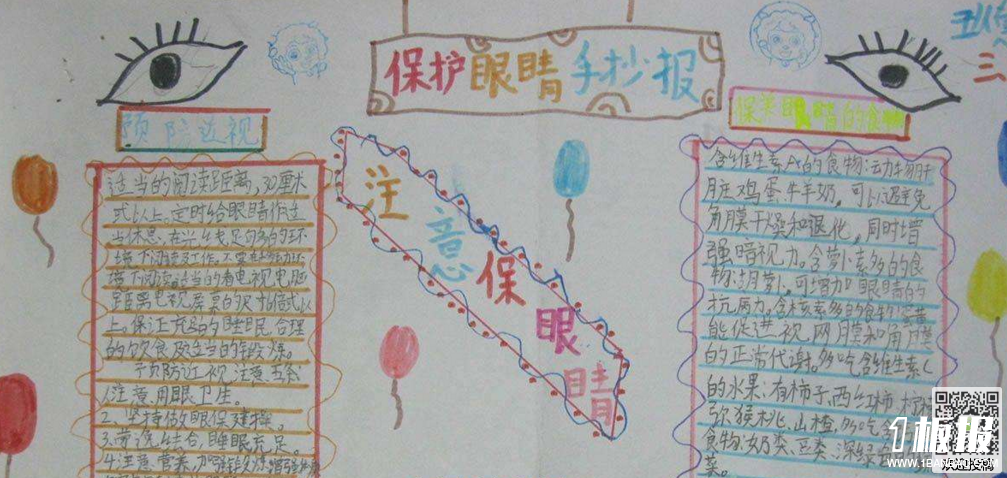 保护眼睛手抄报
五
三
预防近视
适当的阅读距离,30厘米
或以上。定时给眼睛作适
当休息、在光线足够的环
境下阅读写工作。不要在
境下阅读适当的看电视电脑
距离电视屏幕的尺寸倍或以
上。保证充足的睡眠,合理
的饮食及适当的锻炼。
预防近视注意
注意用眼卫生。
2、坚持做眼保健操。
3、劳逸结合,睡眠充足。
4、注意营养,加强锻炼,增强体质
注意保眼睛
保养眼睛的食物
含维生素A的食物:动物肝
脏、鸡蛋、牛羊奶,可以避免
角膜干燥和退化,同时增
强暗视力。含萝卜素多的食
物:胡萝卜,可增加眼睛的
抗病力。含核素多的食物:蛋黄
能促进视网膜和角膜
的正常代谢。多吃含维生素C
的水果:有柿子、西红柿、柠檬
猕猴桃、山楂,多吃含
食物:奶类、豆类、深绿
菜。
1板报
WWW.1BANBAO.COM
欢迎投稿